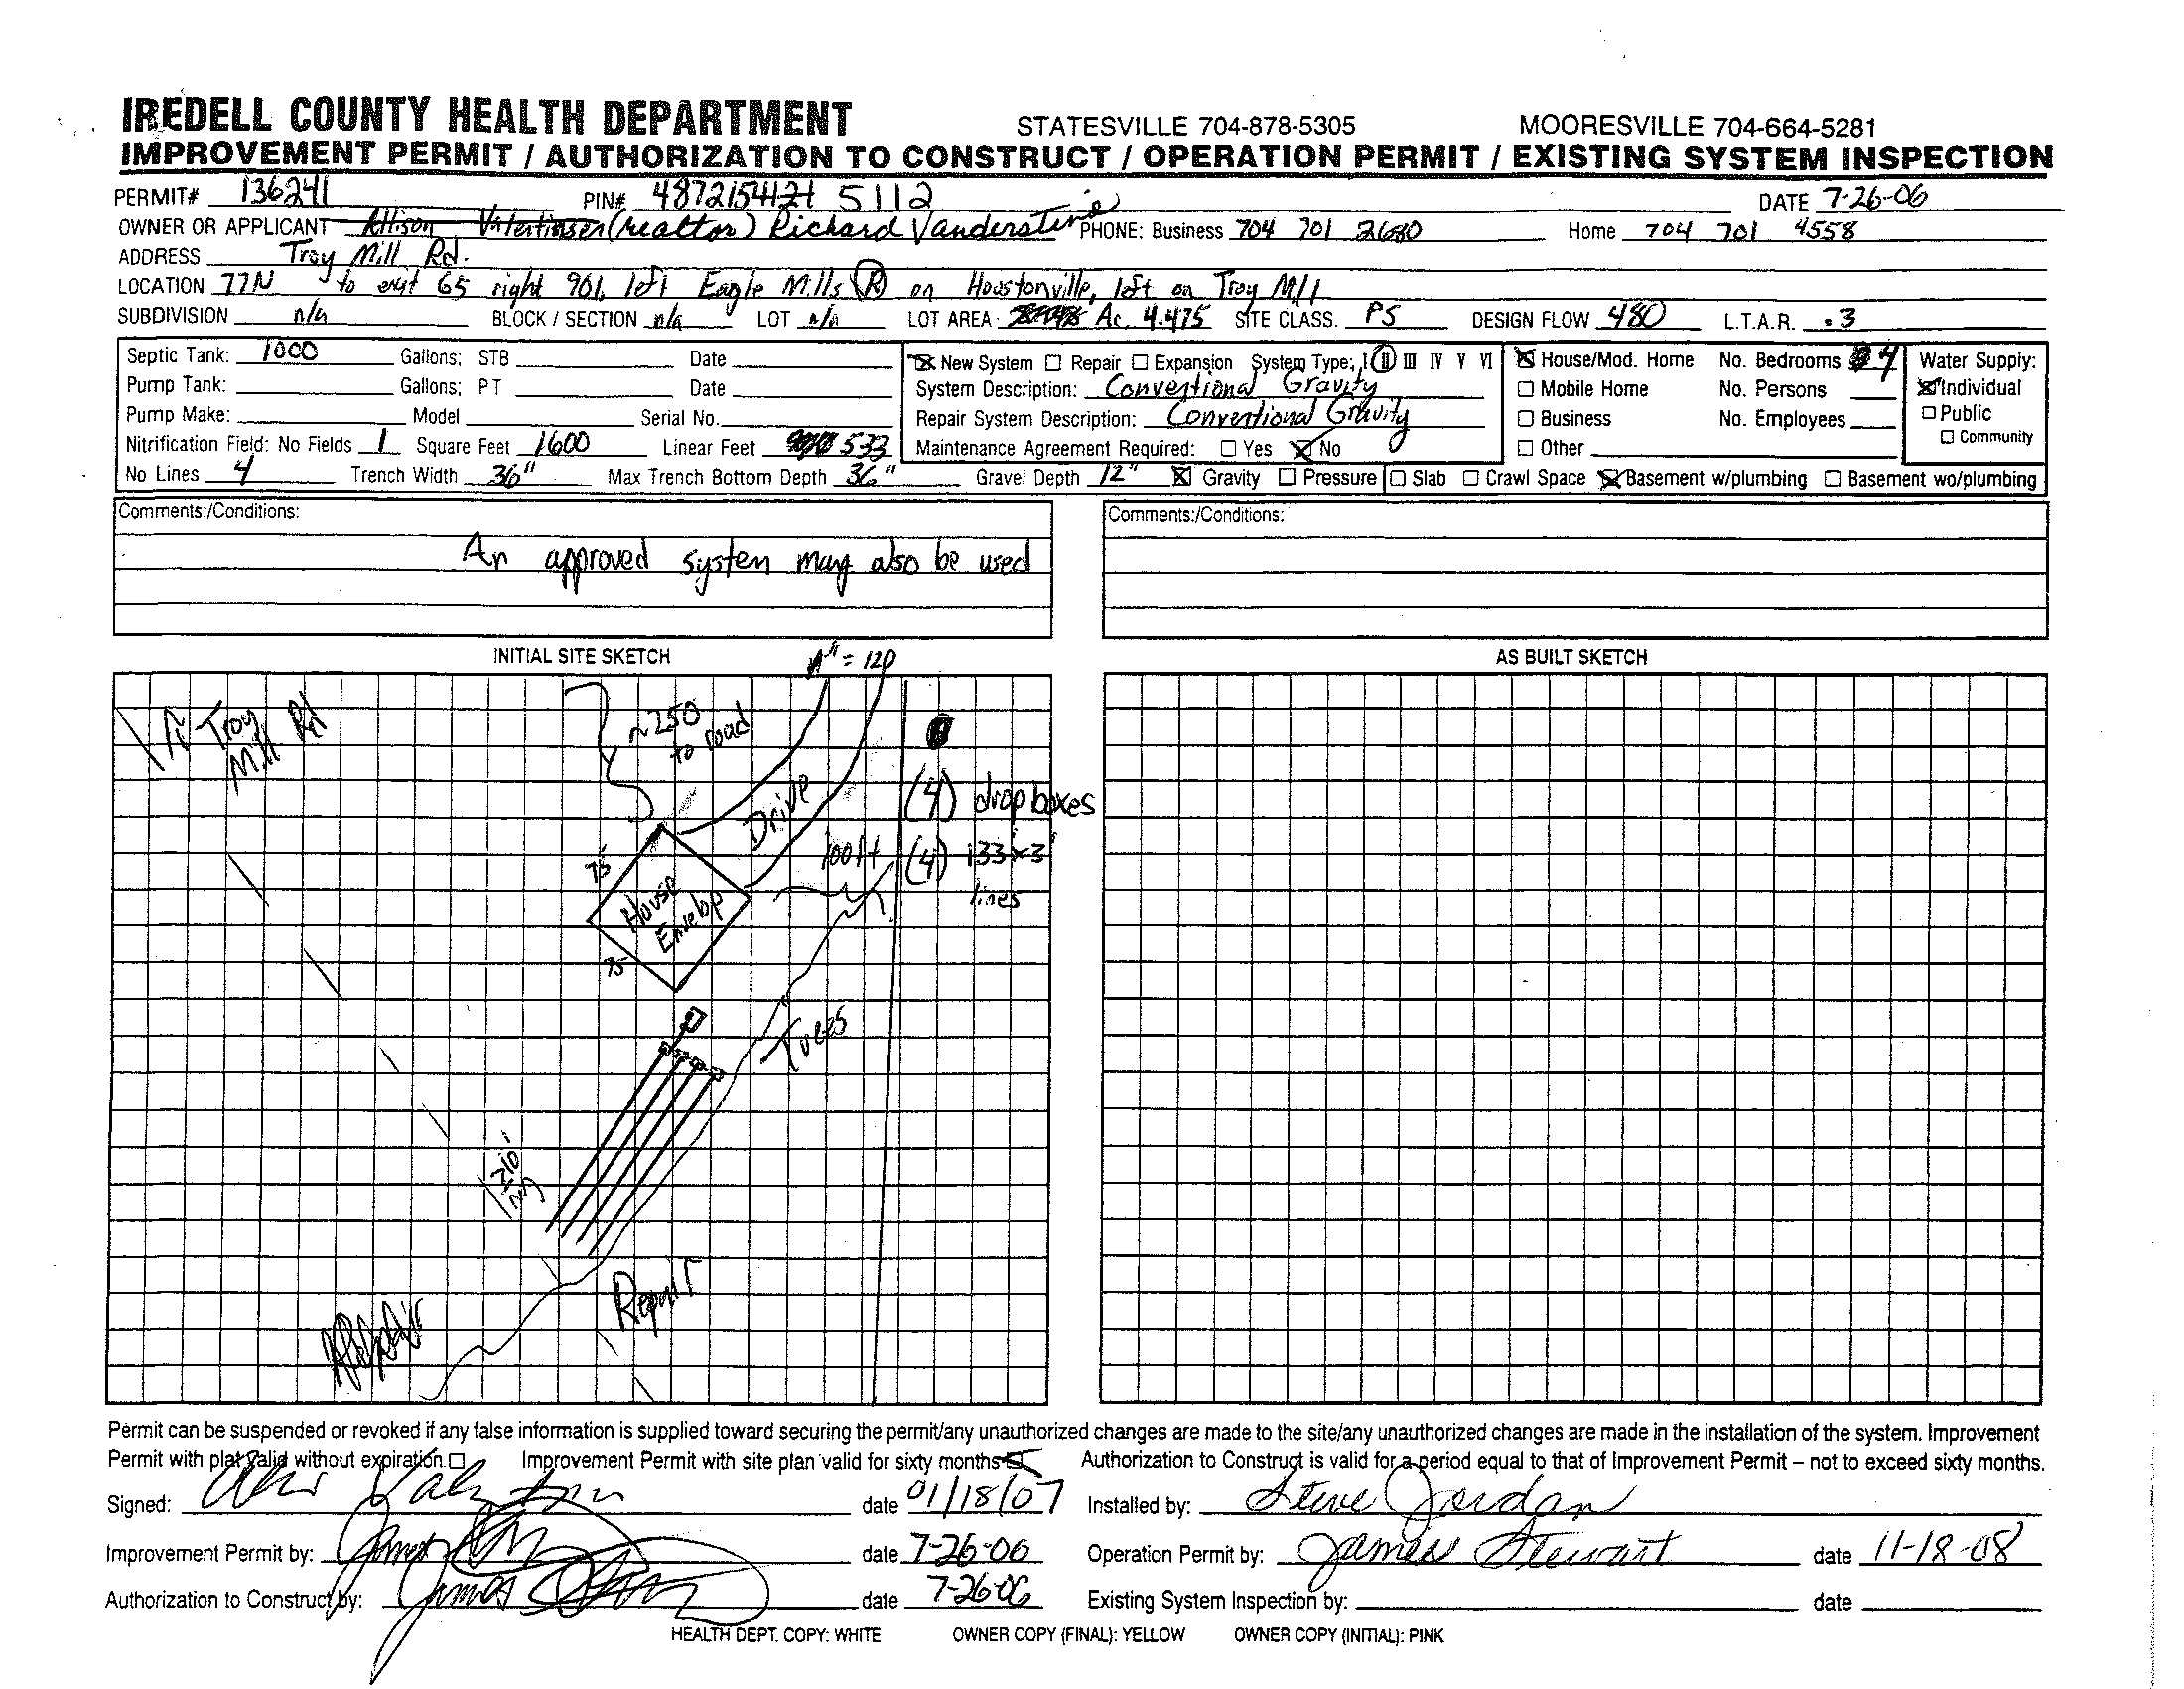 IREDELL COUNTY HEALTH DEPARTMENT STATESVILLE 704-878-5305 MOORESVILLE 704-664-5281
IMPROVEMENT PERMIT / AUTHORIZATION TO CONSTRUCT / OPERATION PERMIT / EXISTING SYSTEM INSPECTION
PERMIT# 136241 PIN# 5112 DATE 7-26-06
OWNER OR APPLICANT Allison (realtor) Richard Vanderstine PHONE: Business 704 701 2680 Home 704 701 4558
ADDRESS Troy Mill Rd.
LOCATION 77N to exit 65 right 901, left Eagle Mills (R) on Houstonville, left on Troy Mill
SUBDIVISION n/a BLOCK / SECTION n/a LOT n/a LOT AREA Ac. 4.475 SITE CLASS. PS DESIGN FLOW 480 L.T.A.R. .3
Septic Tank: 1000 Gallons; STB Date New System Repair Expansion System Type: I II III IV V VI House/Mod. Home No. Bedrooms 4 Water Supply:
Pump Tank: Gallons; PT Date System Description: Conventional Gravity Mobile Home No. Persons Individual
Pump Make: Model Serial No. Repair System Description: Conventional Gravity Business No. Employees Public
Nitrification Field: No Fields 1 Square Feet 1600 Linear Feet 533 Maintenance Agreement Required: Yes No Other Community
No Lines 4 Trench Width 36" Max Trench Bottom Depth 36" Gravel Depth 12" Gravity Pressure Slab Crawl Space Basement w/plumbing Basement wo/plumbing
Comments:/Conditions: Comments:/Conditions:
An approved system may also be used
INITIAL SITE SKETCH AS BUILT SKETCH
= 120
Troy Mill Rd
~250 to road
Drive
(4) drop boxes
100ft
(4) 133x3' lines
75
House Envelop
75
Trees
Repair
Permit can be suspended or revoked if any false information is supplied toward securing the permit/any unauthorized changes are made to the site/any unauthorized changes are made in the installation of the system. Improvement
Permit with plat valid without expiration. Improvement Permit with site plan valid for sixty months Authorization to Construct is valid for a period equal to that of Improvement Permit – not to exceed sixty months.
Signed: date 01/18/07 Installed by: Steve Jordan
Improvement Permit by: James date 7-26-06 Operation Permit by: James Stewart date 11-18-08
Authorization to Construct by: James date 7-26-06 Existing System Inspection by: date
HEALTH DEPT. COPY: WHITE OWNER COPY (FINAL): YELLOW OWNER COPY (INITIAL): PINK